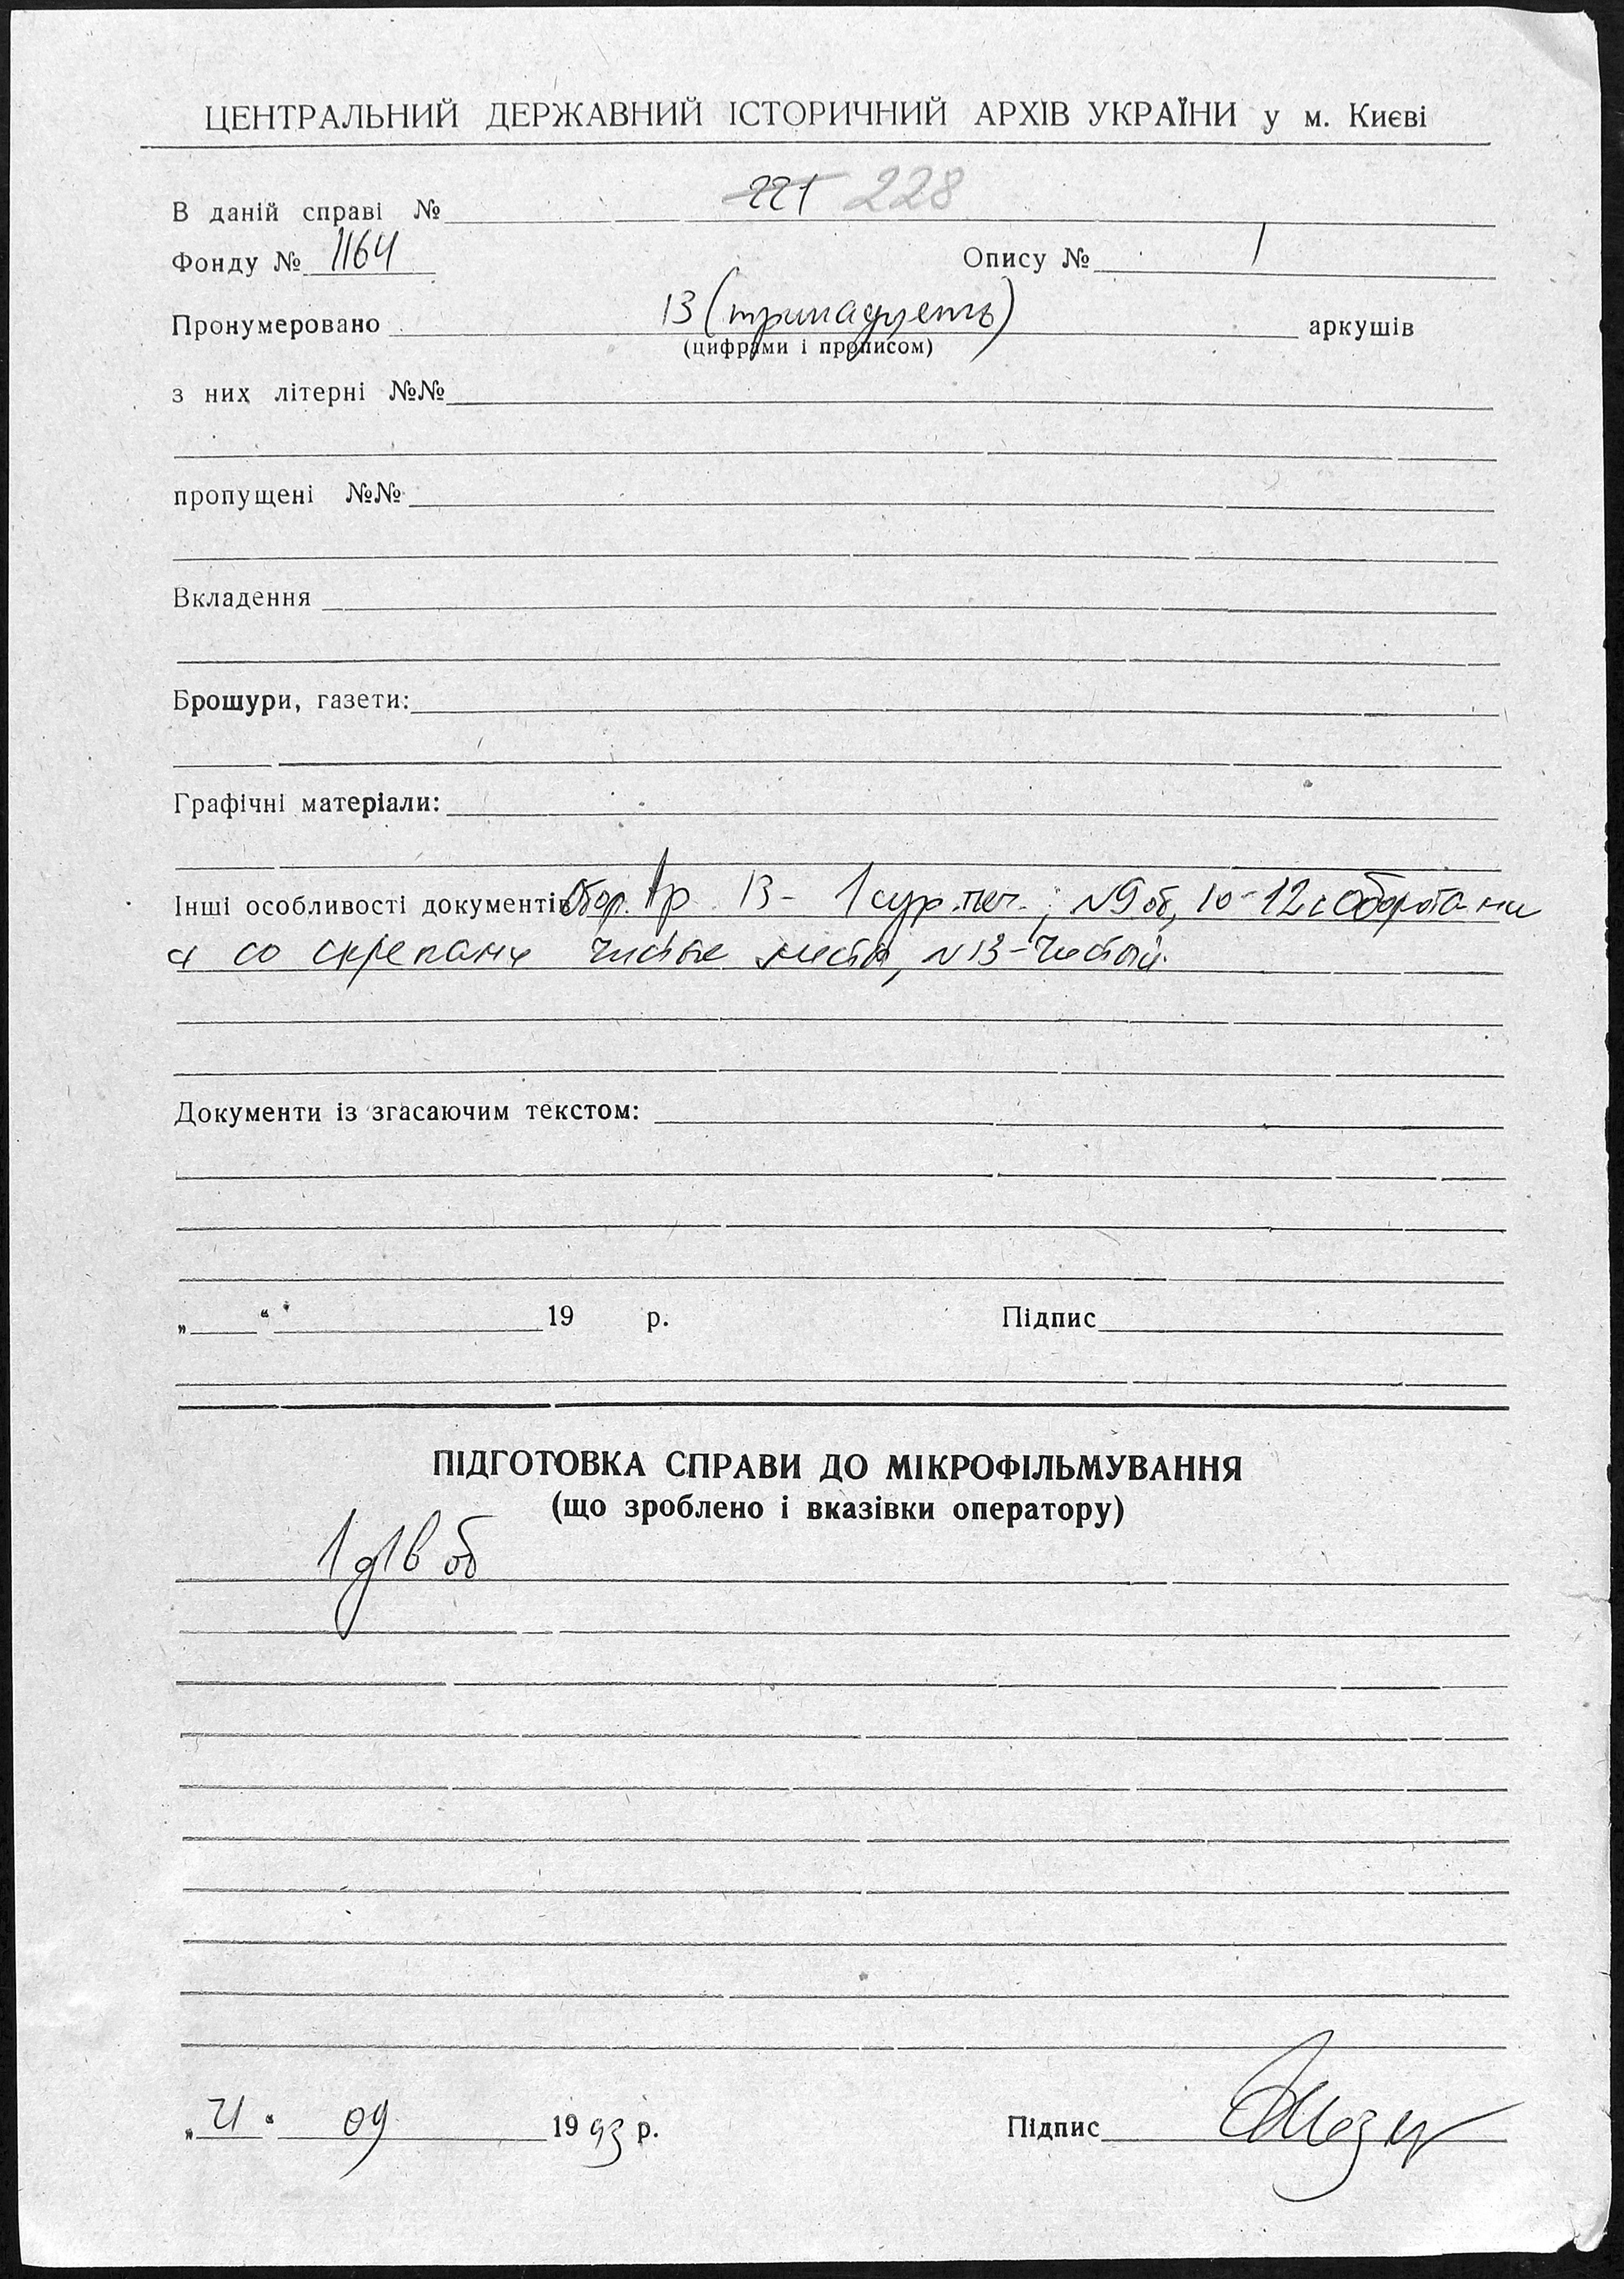 ЦЕНТРАЛЬНИЙ ДЕРЖАВНИЙ ІСТОРИЧНИЙ АРХІВ УКРАЇНИ у м. Києві
В даній справі № 221 228
Фонду № 1164 Опису № 1
Пронумеровано 13 (тринадцять) аркушів
(цифрами і прописом)
з них літерні №№
пропущені №№
Вкладення
Брошури, газети:
Графічні матеріали:
Інші особливості документів 13 - 1 сург. печ.; №9 об, 10-12 с оборотами
со скрепами чистые листы, №13 - чистый.
Документи із згасаючим текстом:
„ “ 19 р. Підпис
ПІДГОТОВКА СПРАВИ ДО МІКРОФІЛЬМУВАННЯ
(що зроблено і вказівки оператору)
об
„ “ 09 1993 р. Підпис